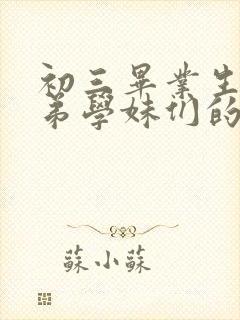 初三畢業生
弟學妹们的
蘇小蘇